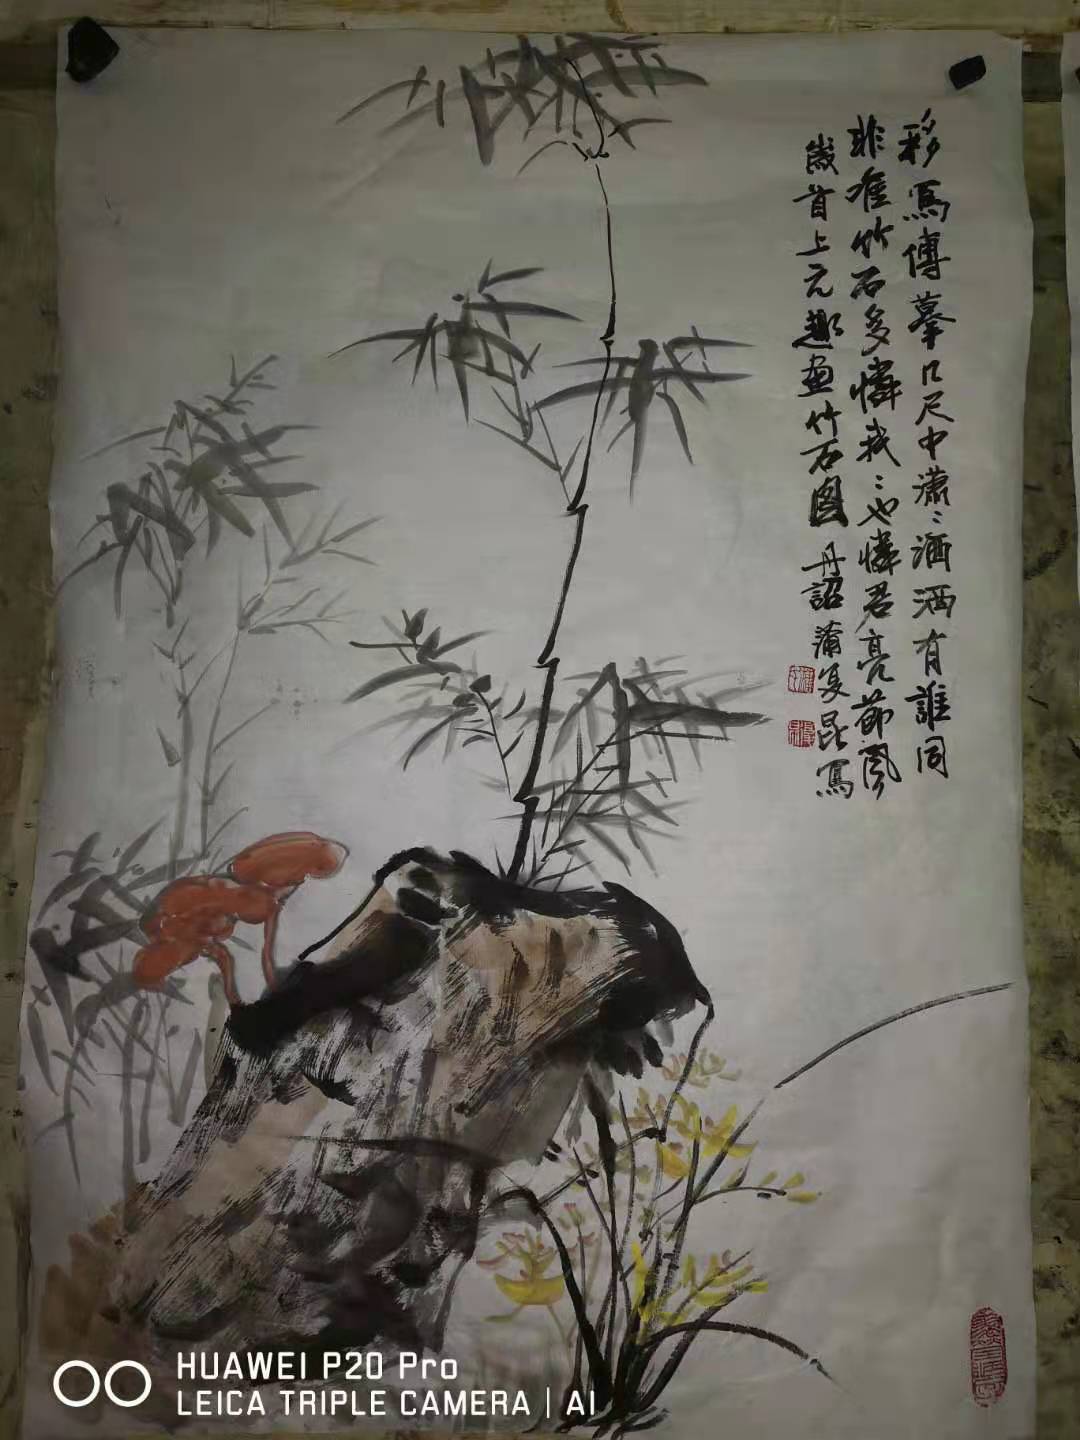 移写傅摹只尺中潇〻洒洒有谁同
非唯竹石多怜我〻也怜君亮节风
岁首上元趣画竹石图 丹诏蒲夏昆写
HUAWEI P20 Pro
LEICA TRIPLE CAMERA | AI